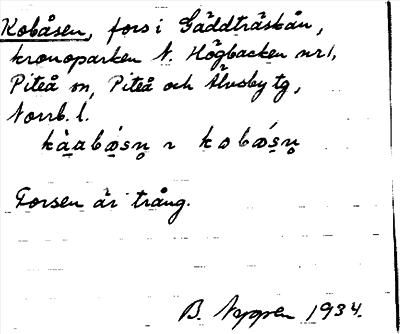 Kobåsen, fors i Gäddträskån,
kronoparken N. Högbacken nr 1,
Piteå sn, Piteå och Älvsby tg,
Norrb. l.
kàabǿsn̥ ~ kobǿsn̥
Forsen är trång.
B. 1934.